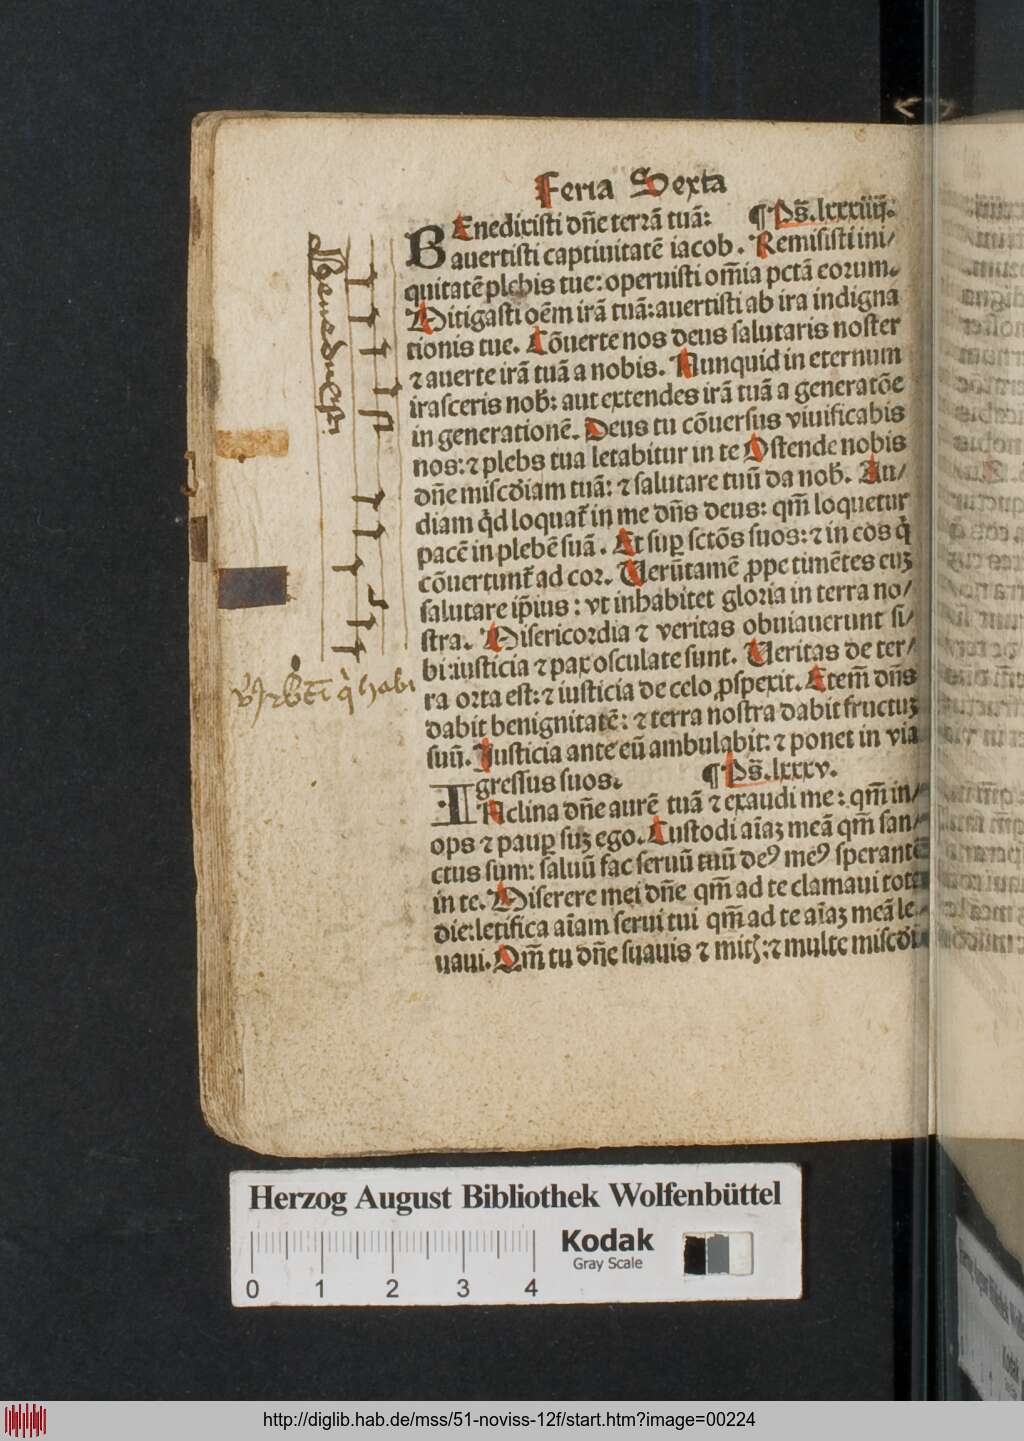 Feria Sexta
BEnedixisti dñe terrā tuā: ¶ Ps̄. lxxxiiij.
auertisti captiuitatē iacob. Remisisti ini/
quitatē plebis tue: operuisti om̄ia pctā eorum.
Mitigasti oēm irā tuā: auertisti ab ira indigna
tionis tue. Cōuerte nos deus salutaris noster
⁊ auerte irā tuā a nobis. Nunquid in eternum
irasceris nob̄: aut extendes irā tuā a generatōe
in generationē. Deus tu cōuersus viuificabis
nos: ⁊ plebs tua letabitur in te Ostende nobis
dñe miscd̄iam tuā: ⁊ salutare tuū da nob̄. Au/
diam qd̄ loquat̄ in me dñs deus: qm̄ loquetur
pacē in plebē suā. Et suꝑ sctōs suos: ⁊ in eos q̇
cōuertunt̄ ad cor. Uerūtamē ꝓpe timētes euꝫ
salutare ip̄ius: vt inhabitet gloria in terra no/
stra. Misericordia ⁊ veritas obuiauerunt si/
bi: iusticia ⁊ pax osculate sunt. Ueritas de ter/
ra orta est: ⁊ iusticia de celo ꝓspexit. Etem̄ dñs
dabit benignitatē: ⁊ terra nostra dabit fructuꝫ
suū. Iusticia ante eū ambulabit: ⁊ ponet in via
gressus suos. ¶ Ps̄. lxxxv.
INclina dñe aurē tuā ⁊ exaudi me: qm̄ in/
ops ⁊ pauꝑ suꝫ ego. Custodi aīaꝫ meā qm̄ san/
ctus sum: saluū fac seruū tuū deꝰ meꝰ sperantē
in te. Miserere mei dñe qm̄ ad te clamaui tota
die: letifica aīam serui tui qm̄ ad te aīaꝫ meā le/
uaui. Qm̄ tu dñe suauis ⁊ mitꝭ: ⁊ multe miscd̄i
Herzog August Bibliothek Wolfenbüttel
0 1 2 3 4
Kodak
Gray Scale
http://diglib.hab.de/mss/51-noviss-12f/start.htm?image=00224